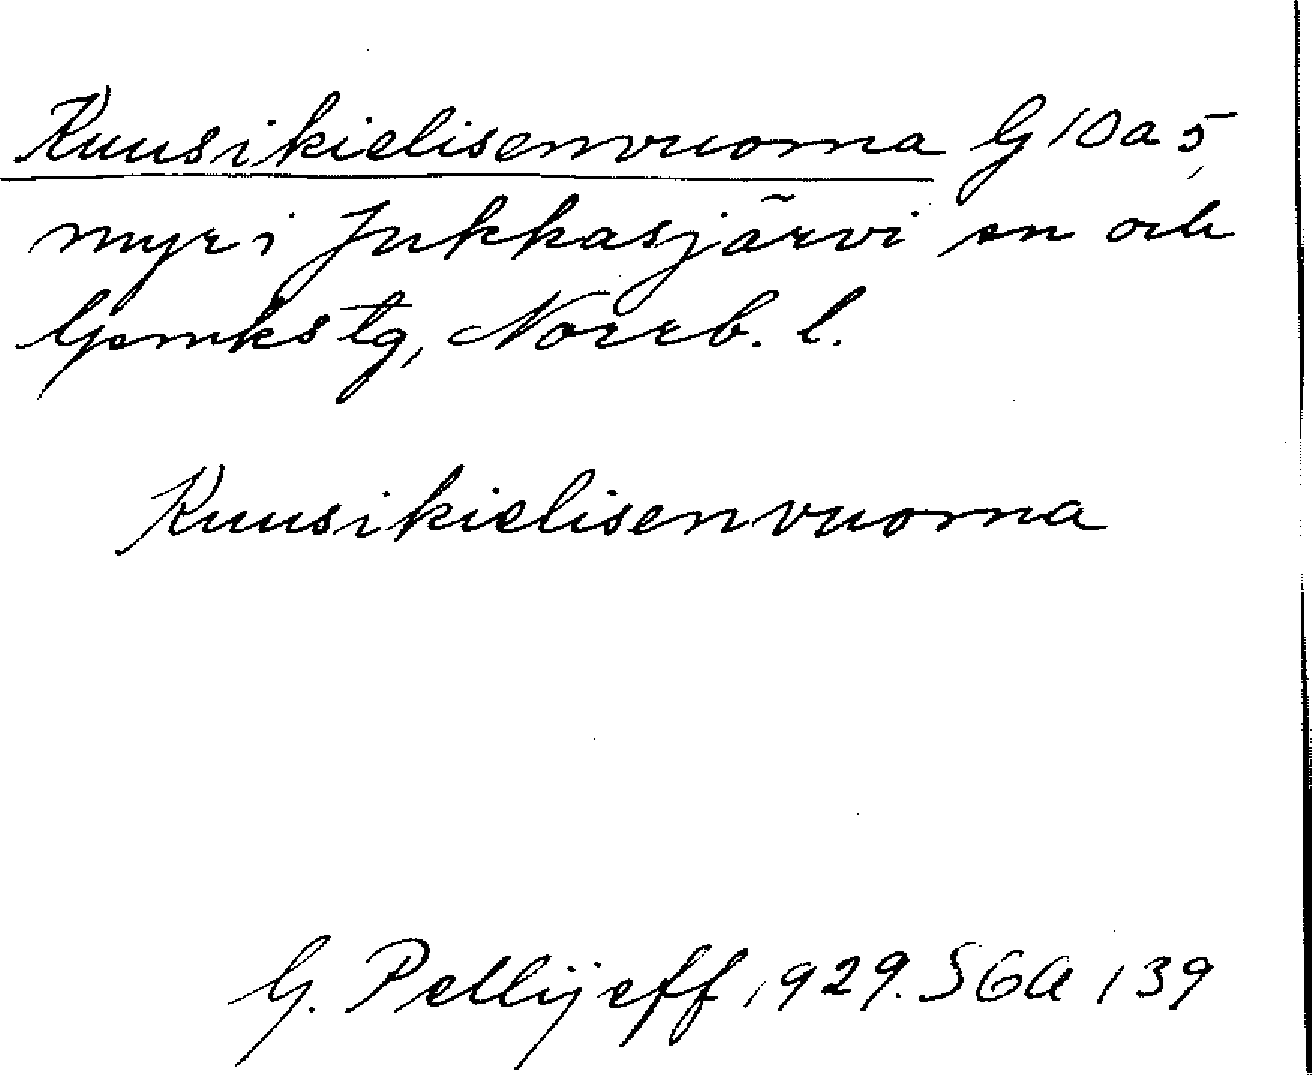 Kuusikielisenvuoma G 10 a 5,
myr i Jukkasjärvi sn och
tg, Norrb. l.
Kuusikielisenvuoma
G. Pellijeff 1929. SGA 139